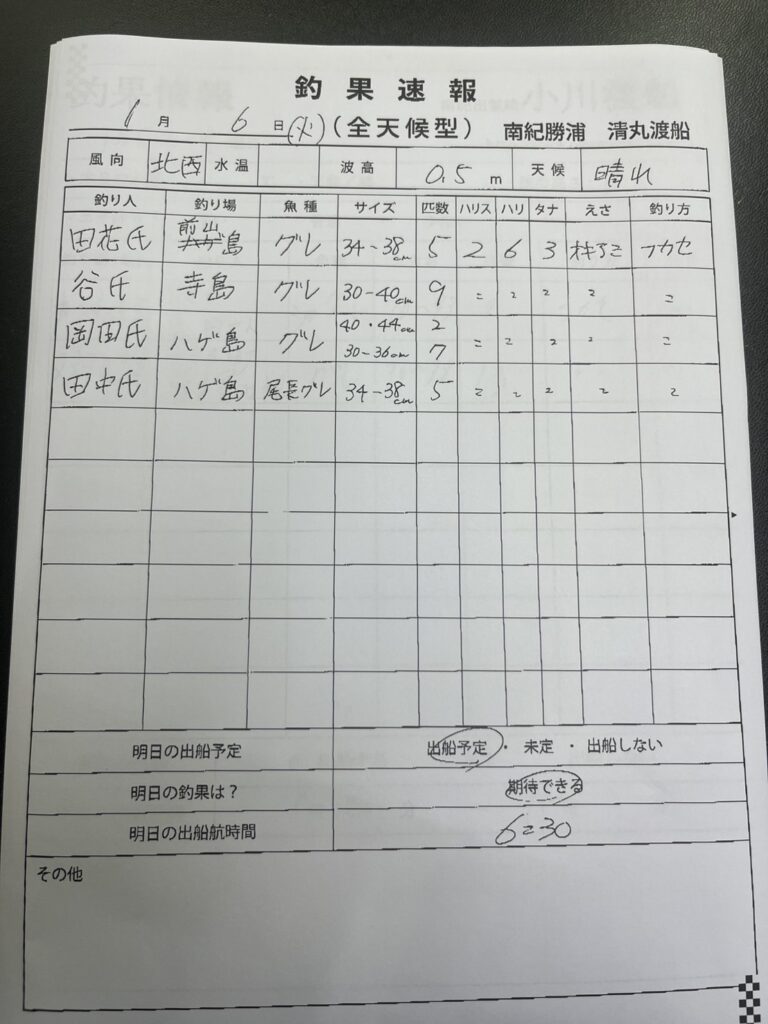 釣果速報
1月 6日(火)(全天候型) 南紀勝浦 清丸渡船
風向 北西 水温 波高 0.5 m 天候 晴れ
釣り人 釣り場 魚種 サイズ 匹数 ハリス ハリ タナ えさ 釣り方
田花氏 前山島 グレ 34-38cm 5 2 6 3 オキアミ フカセ
谷氏 寺島 グレ 30-40cm 9 〃 〃 〃 〃 〃
岡田氏 ハゲ島 グレ 40・44cm 2 〃 〃 〃 〃 〃
30-36cm 7
田中氏 ハゲ島 尾長グレ 34-38cm 5 〃 〃 〃 〃 〃
明日の出船予定 出船予定・未定・出船しない
明日の釣果は? 期待できる
明日の出船航時間 6:30
その他